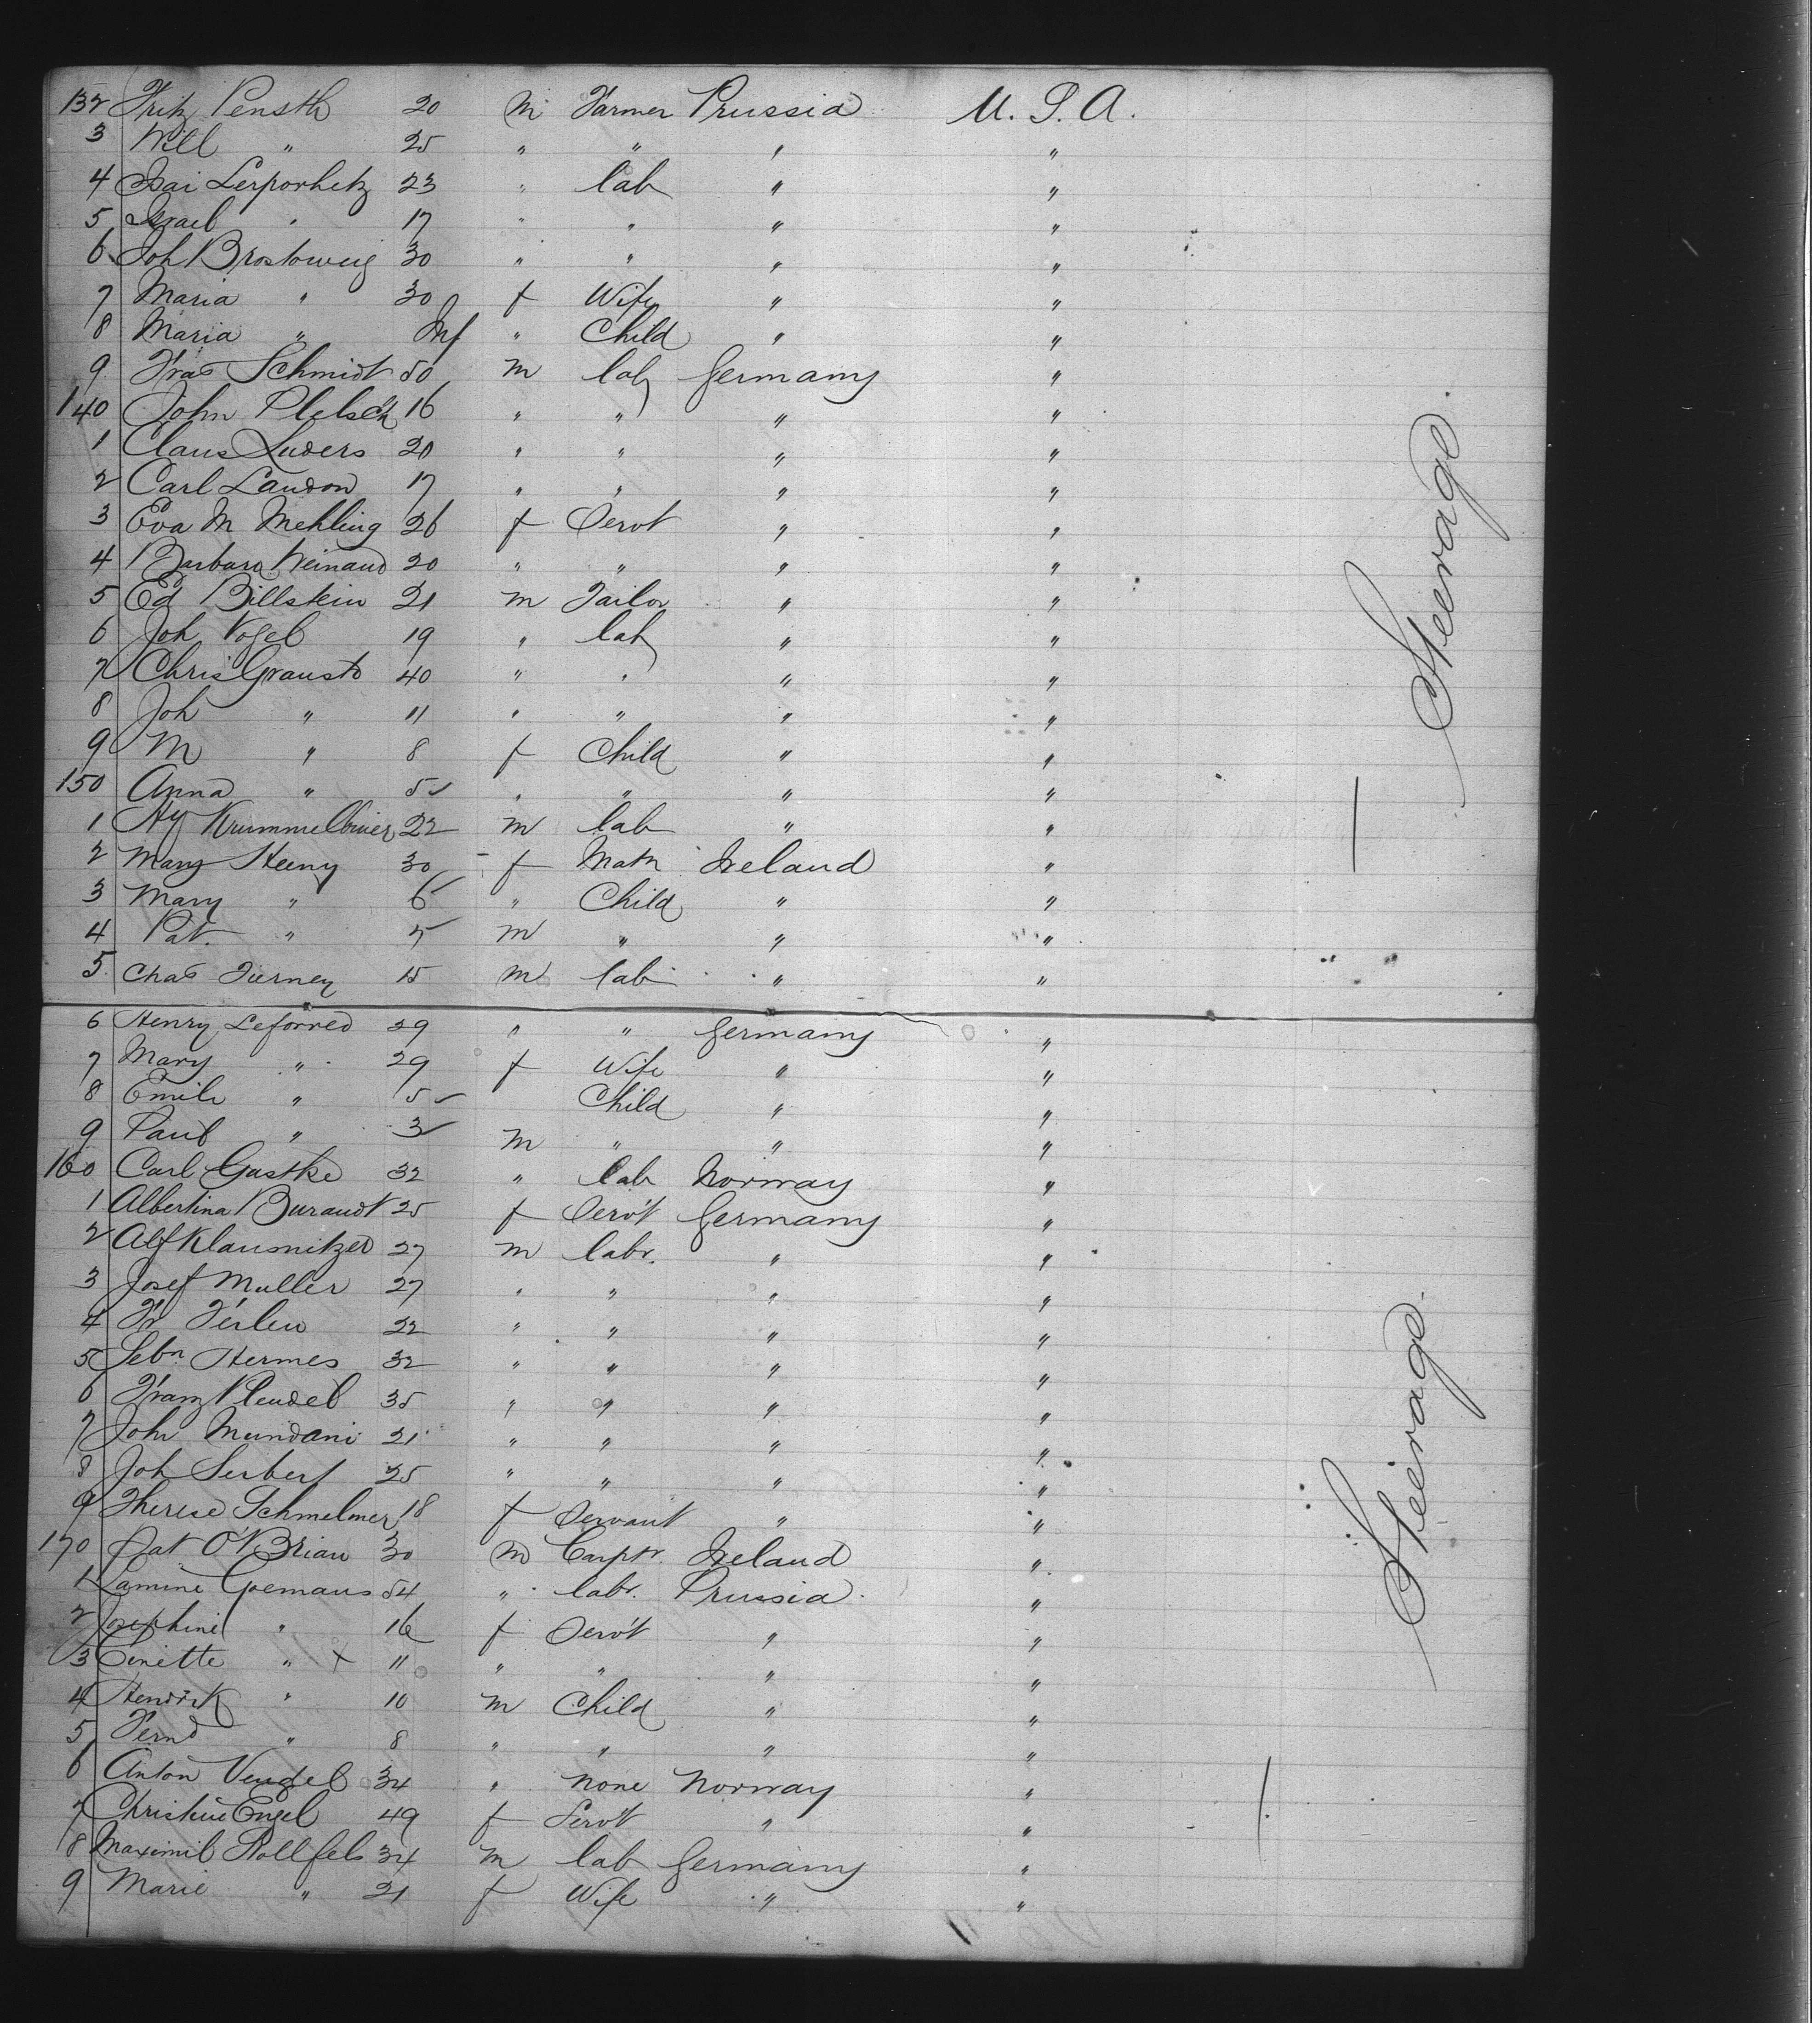 132 Fritz Pensth 20 m Farmer Prussia U. S. A.
3 Will " 25 " " " "
4 Isai Lerporhetz 23 " lab " "
5 Israel " 17 " " " "
6 Joh Brostoweig 30 " " " "
7 Maria " 30 f Wife " "
8 Maria " Inf " Child " "
9 Fras Schmidt 50 m lab Germany "
140 John Pletsch 16 " " " "
1 Claus Luders 20 " " " "
2 Carl Landon 17 " " " "
3 Eva M Mehling 26 f Servt " "
4 Barbara Weinand 20 " " " "
5 Ed Billstein 21 m Tailor " "
6 Joh Vogel 19 " lab " "
7 Chris Grausto 40 " " " "
8 Joh " 11 " " " "
9 M " 8 f Child " "
150 Anna " 5 " " " "
1 Hy 22 m lab " "
2 Mary Heeny 30 f Matn Ireland "
3 Mary " 6 " Child " "
4 Pat. " 5 m " " "
5 Chas Tierney 15 m lab " "
6 Henry Leforred 29 " " Germany "
7 Mary " 29 f Wife " "
8 Emile " 5 Child " "
9 Paul " 3 m " " "
160 Carl Gastke 32 " lab Norway "
1 Albertina Burandt 25 f Servt Germany "
2 Alf Klausnitzer 27 m labr. " "
3 Josef Muller 27 " " " "
4 Fr Ferlen 22 " " " "
5 Sebn Hermes 32 " " " "
6 Franz Pleudel 35 " " " "
7 John Mundani 21 " " " "
8 Joh Serbert 25 " " " "
9 Therese Schmelmer 18 f Servant " "
170 Pat O'Brian 30 m Carptr. Ireland "
1 Lamine Goemans 54 " labr. Prussia "
2 Josephine " 16 f Servt " "
3 Cinette " x 11 " " " "
4 Hendrik " 10 m Child " "
5 Fernd " 8 " " " "
6 Anton Vengel 34 " none Norway "
7 Christine Engel 49 f Servt " "
8 Maximil Rollfels 34 m lab Germany "
9 Marie " 21 f Wife " "
Steerage.
Steerage.